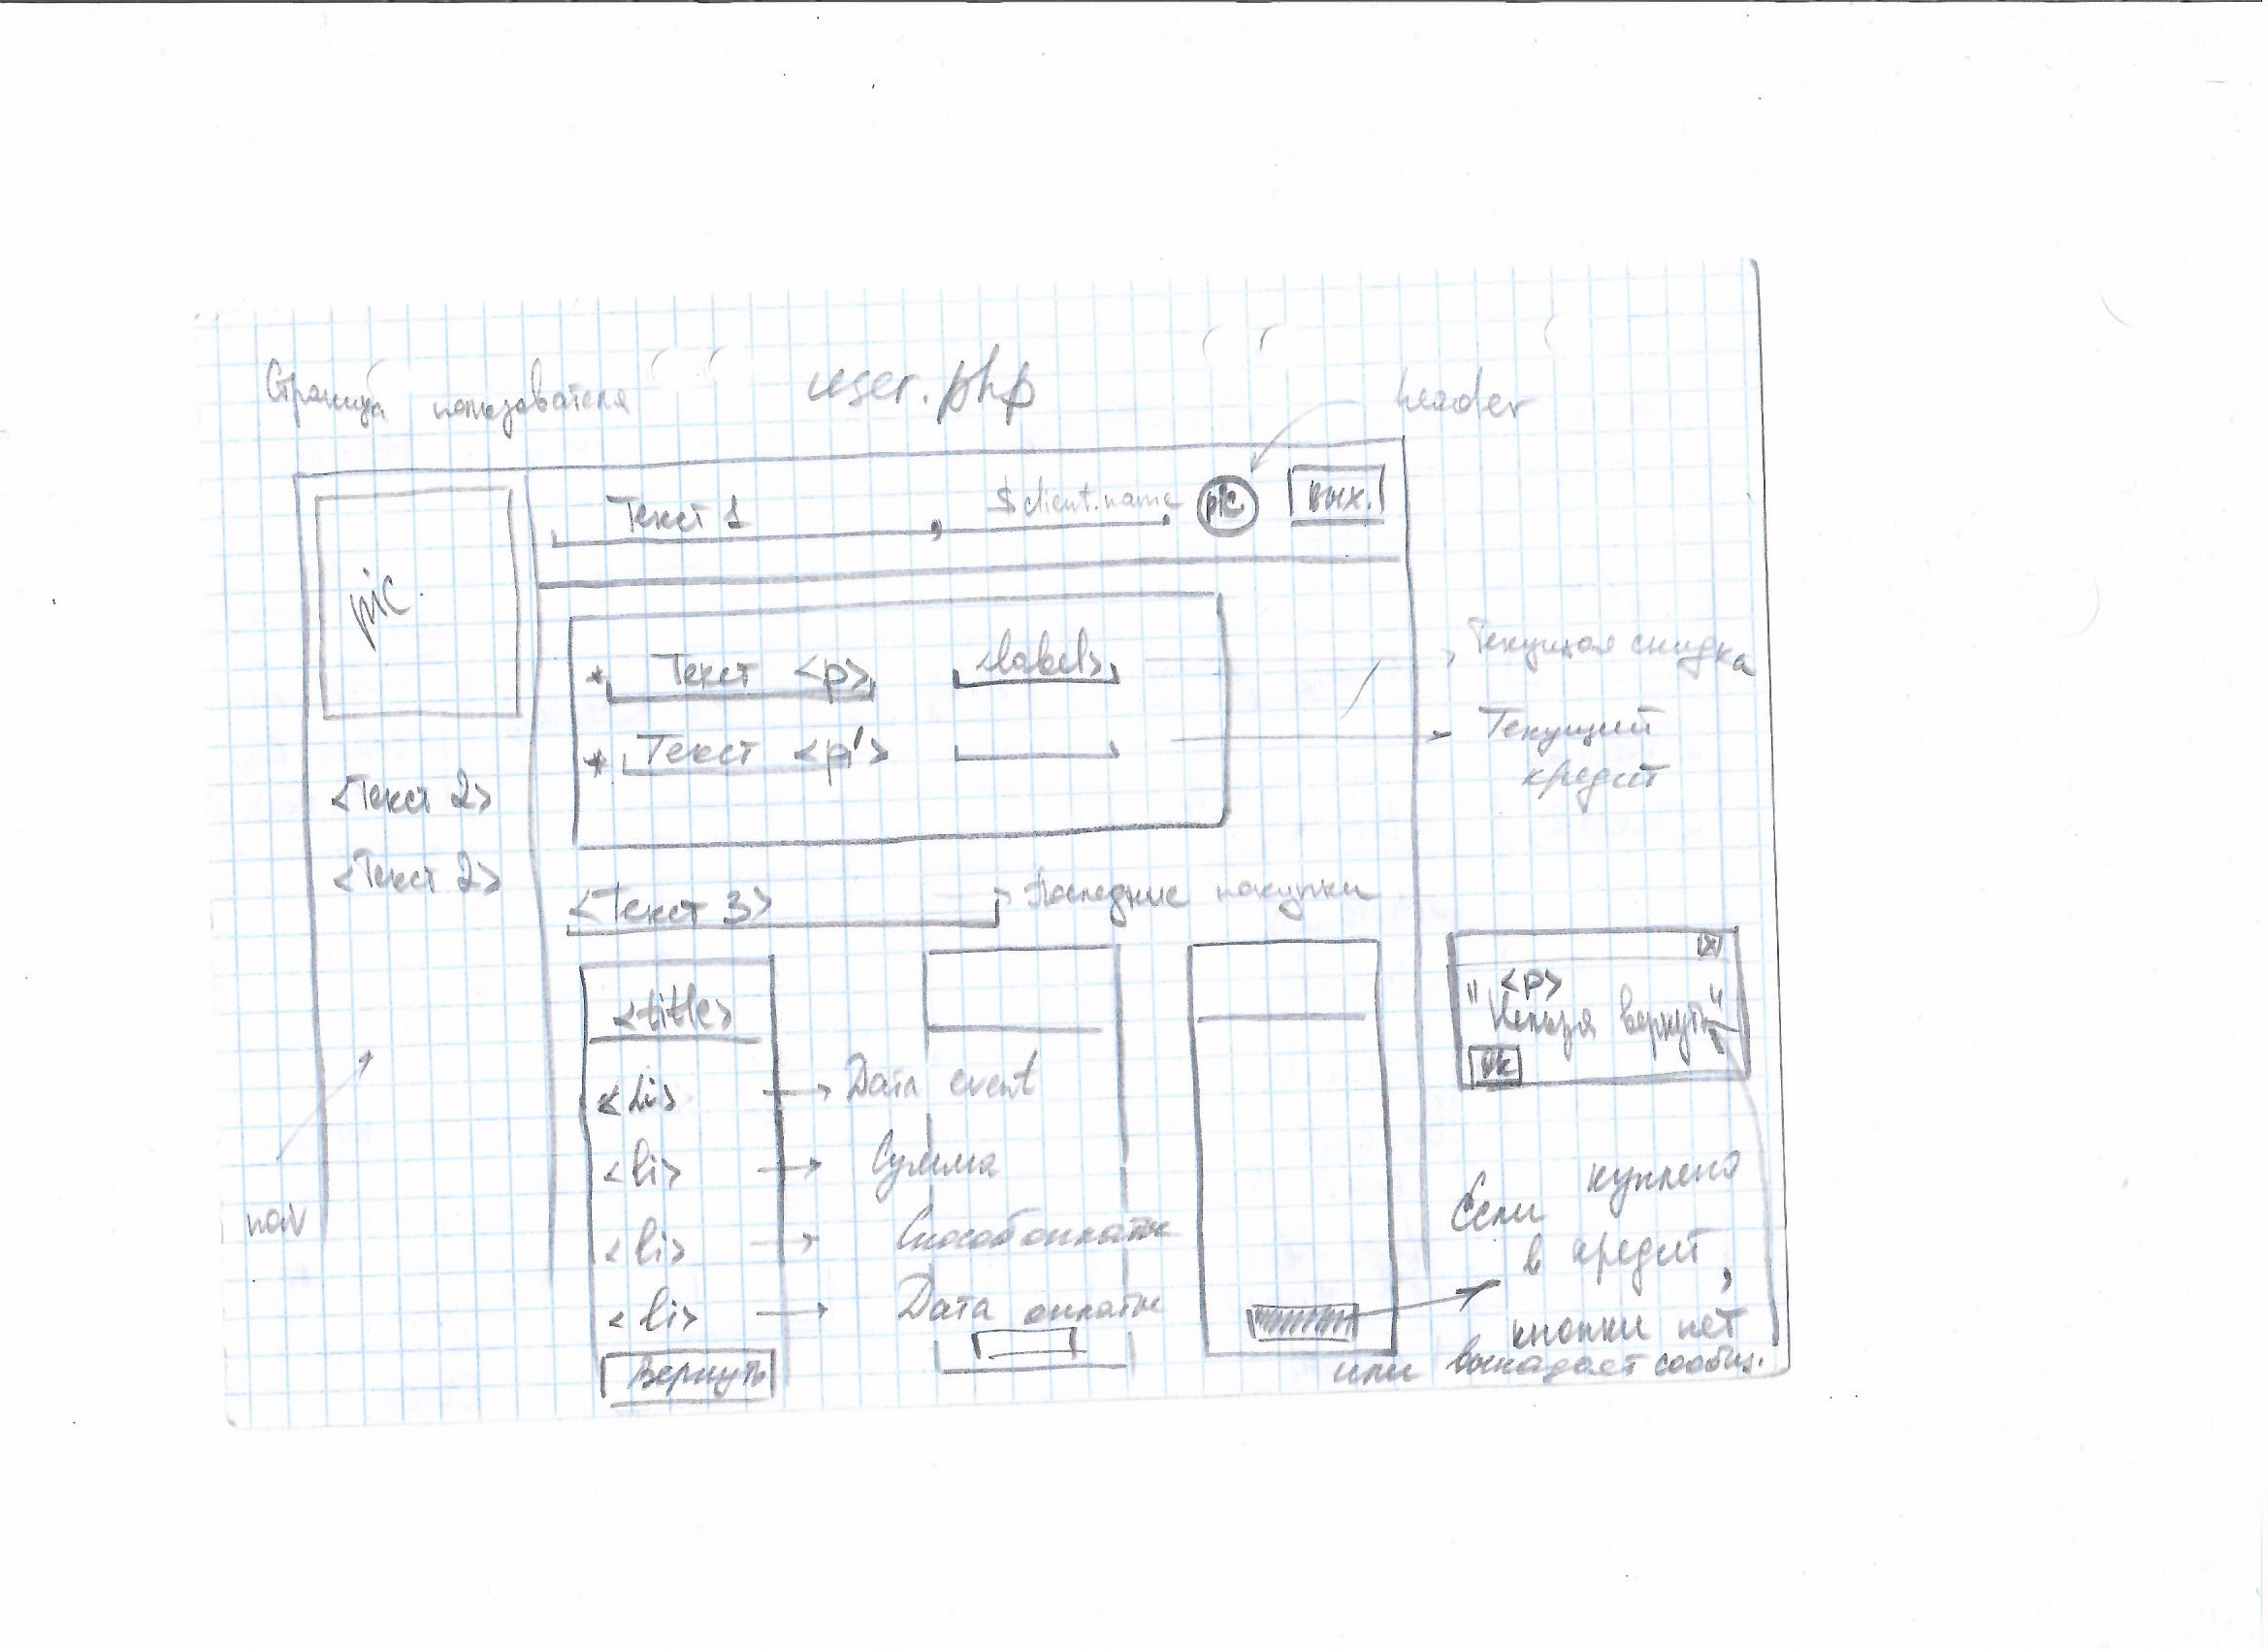 Страница пользователя
user.php
header
Текст 1 , $client.name pic вых.
pic.
* Текст <p> <label>
Текущая скидка
* Текст <p>
Текущий кредит
<Текст 2>
<Текст 2>
<Текст 3> Последние покупки
<title>
<li> Дата event
<li> Сумма
<li> Способ оплаты
<li> Дата оплаты
Вернуть
nav
x
<p>
"Нельзя вернуть"
Ok
Если куплено
в кредит,
кнопки нет
или выпадает сообщ.